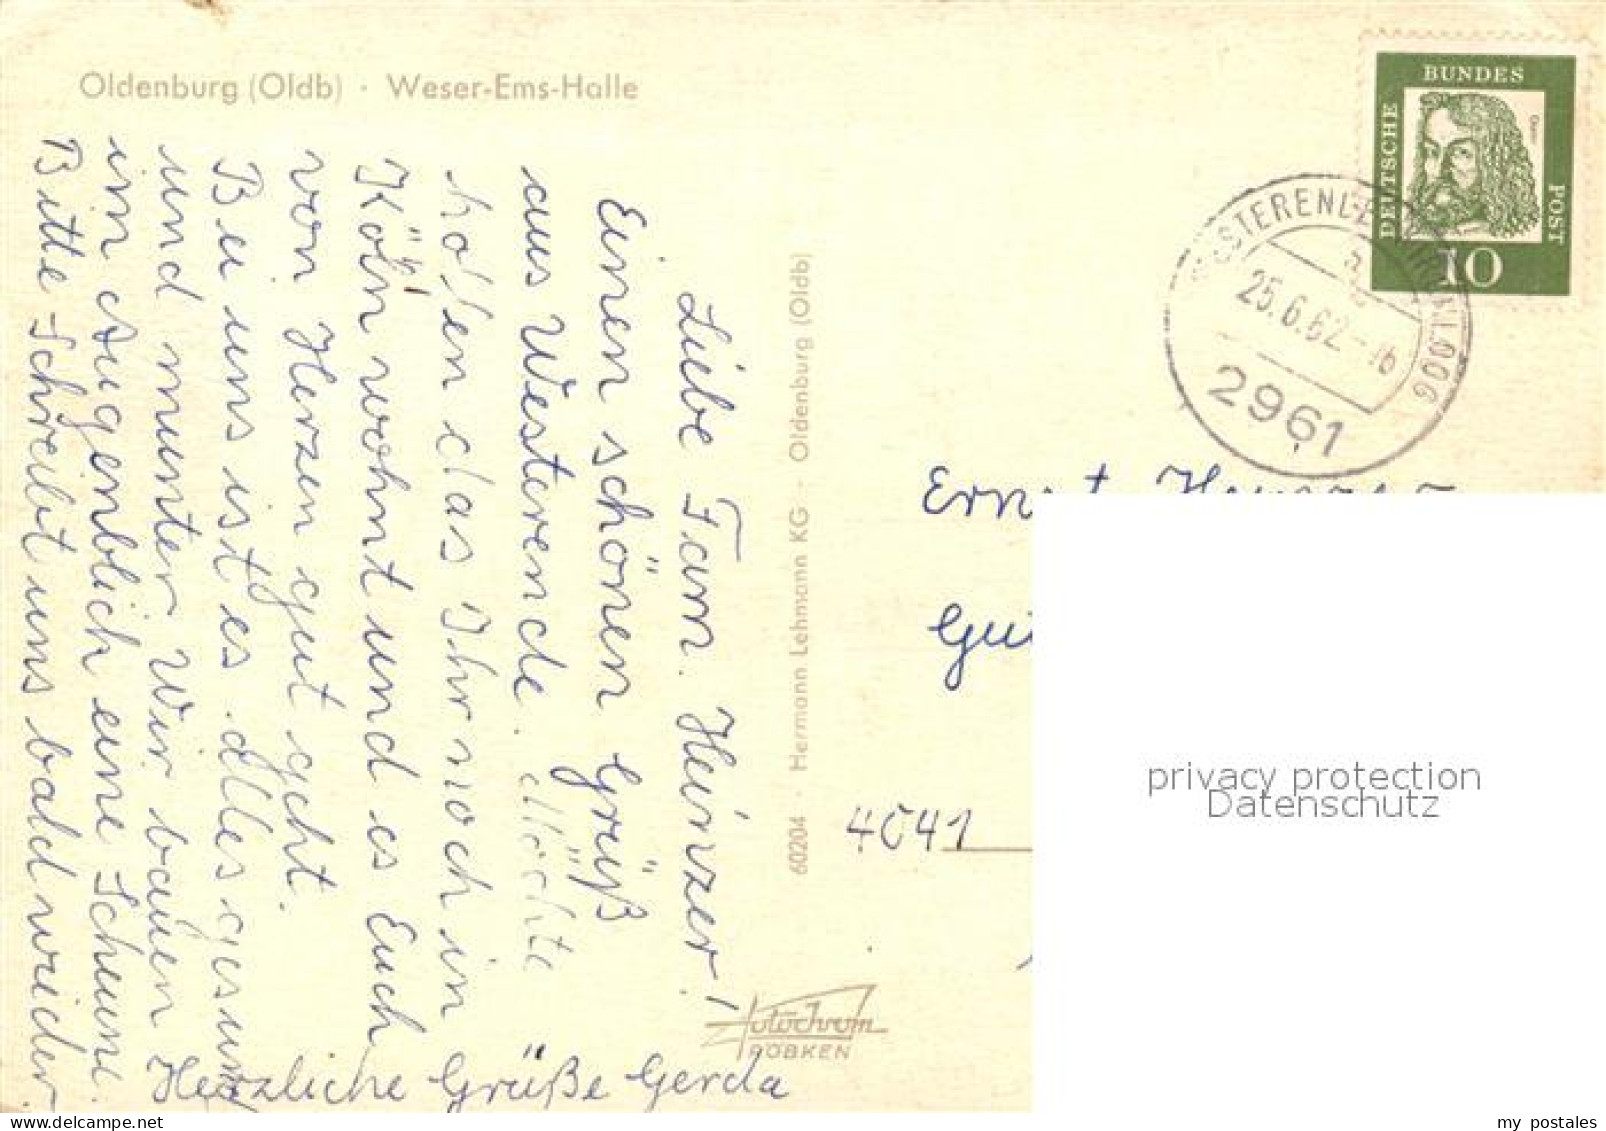 Oldenburg (Oldb) · Weser-Ems-Halle
Liebe Fam. Heinzer!
Einen schönen Grüß
aus Westerende. Möchte
hoffen das Ihr noch in
Köln wohnt und es Euch
von Herzen gut geht.
Bei uns ist es alles gesund
und munter Wir bauen
im Augenblich eine Scheune.
Bitte Schreibt uns bald wieder
Herzliche Grüße Gerda
60204 · Hermann Lehmann KG · Oldenburg (Oldb)
RÖBKEN
DEUTSCHE
BUNDES
POST
10
25.6.62-16
2961
Ernst
4041
privacy protection
Datenschutz
my postales